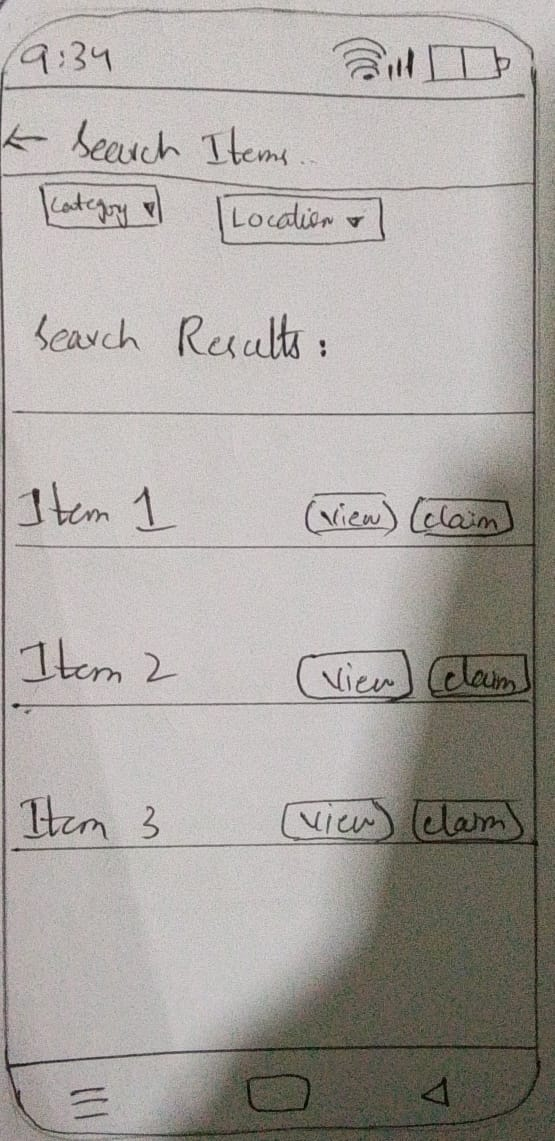 9:34
← Search Items..
Category ▾ Location ▾
Search Results:
Item 1 View claim
Item 2 View claim
Item 3 View claim